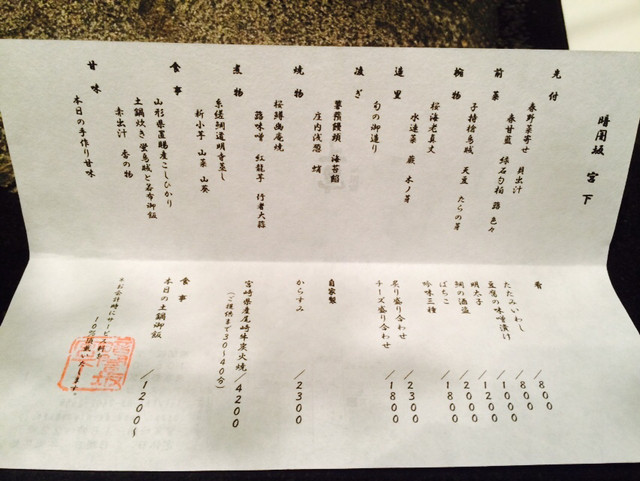 暗闇坂 宮下
先付
春野菜寄せ 貝出汁
前菜
春甘藍 蕗 色々
子持槍烏賊 天豆 たらの芽
椀物
桜海老真丈
水連菜 蕨 木ノ芽
造里
旬の御造り
凌ぎ
蕈饅頭 海苔餡
庄内浅葱 蛸
焼物
桜鱒幽庵焼
蕗味噌 紅龍芋 行者大蒜
煮物
糸縒鯛道明寺蒸し
新小芋 山菜 山葵
食事
山形県置賜産こしひかり
土鍋炊き 蛍烏賊と若布御飯
赤出汁 香の物
甘味
本日の手作り甘味
肴
たたみいわし /800
豆腐の味噌漬け /800
明太子 /1000
鯛の酒盗 /1200
ばちこ /2000
吟味三種 /1800
炙り盛り合わせ /2300
チーズ盛り合わせ /1800
自家製
からすみ /2300
宮崎県産尾崎牛炭火焼 /4200
(ご提供まで30~40分)
食事
本日の土鍋御飯 /1200~
※お会計時にサービス料を
10%頂戴いたします。